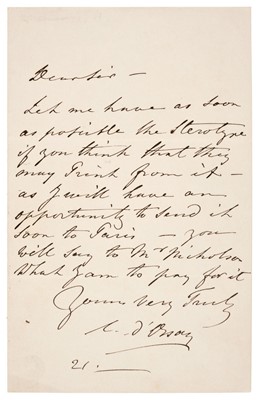 Dear Sir –
Let me have as soon
as possible the Sterotype
if you think that they
may Print from it –
as I will have an
opportunity to send it
soon to Paris – you
will say to Mr Nicholson
What I am to pay for it
Yours very Truly
C. d'Orsay
21.